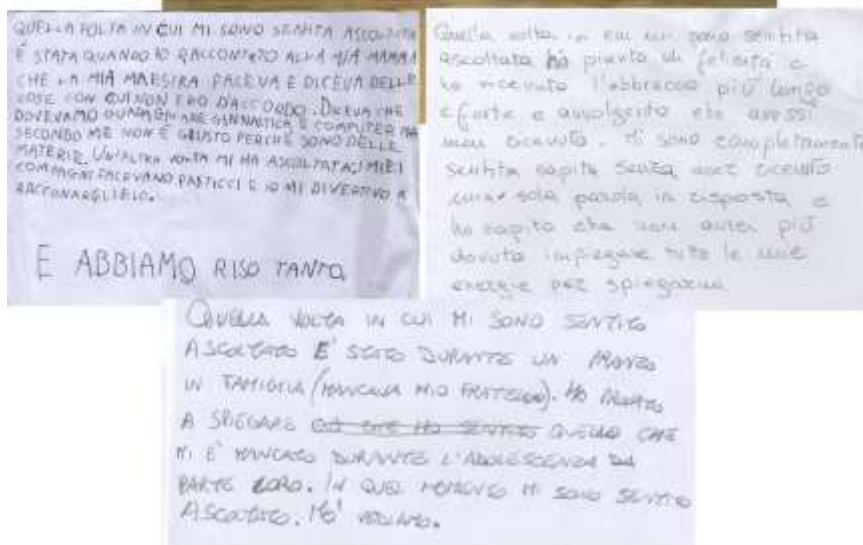 QUELLA VOLTA IN CUI MI SONO SENTITA ASCOLTATA
È STATA QUANDO HO RACCONTATO ALLA MIA MAMMA
CHE LA MIA MAESTRA FACEVA E DICEVA DELLE
COSE CON CUI NON ERO D'ACCORDO. DICEVA CHE
DOVEVAMO GUADAGNARE GINNASTICA E COMPUTER MA
SECONDO ME NON È GIUSTO PERCHÉ SONO DELLE
MATERIE. UN'ALTRA VOLTA MI HA ASCOLTATA, I MIEI
COMPAGNI FACEVANO PASTICCI E IO MI DIVERTIVO A
RACCONARGLIELO.
E ABBIAMO RISO TANTO
Quella volta in cui mi sono sentita
ascoltata ho pianto di felicità e
ho ricevuto l'abbraccio più lungo
e forte e avvolgente che avessi
mai ricevuto. Mi sono completamente
sentita capita senza aver ricevuto
una sola parola in risposta e
ho capito che non avrei più
dovuto impiegare tutte le mie
energie per spiegarmi
QUELLA VOLTA IN CUI MI SONO SENTITO
ASCOLTATO E' STATO DURANTE UN PRANZO
IN FAMIGLIA (MANCAVA MIO FRATELLO). HO PROVATO
A SPIEGARE CIÒ CHE HO SENTITO QUELLO CHE
MI E' MANCATO DURANTE L'ADOLESCENZA DA
PARTE LORO. IN QUEL MOMENTO MI SONO SENTITO
ASCOLTATO. MO' VEDIAMO.